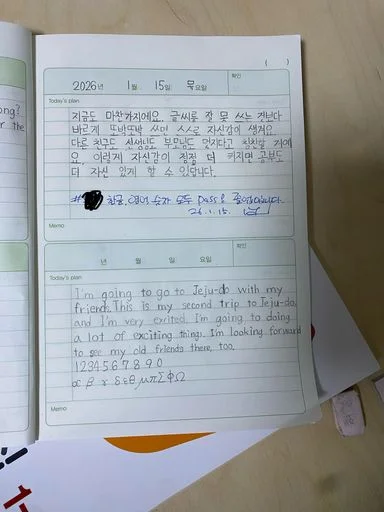 ( )
2026년 1월 15일 목요일
확인
Today's plan
지금도 마찬가지에요. 글씨를 잘 못 쓰는 것보다
바르게 또박또박 쓰면 스스로 자신감이 생겨요.
다른 친구도 선생님도 부모님도 멋지다고 칭찬할 거에
요. 이렇게 자신감이 점점 더 커지면 공부도
더 자신 있게 할 수 있답니다.
# 한글, 영어 숫자 모두 pass로 줄입니다.
26.1.15.
Memo
년 월 일 요일
확인
Today's plan
I'm going to go to Jeju-do with my
friend. This is my second trip to Jeju-do,
and I'm very exrited. I'm going to doing
a lot of exciting things. I'm looking forward
to see my old friends there, too.
1234567890
∝ β γ δ ε θ μ π Σ Φ Ω
Memo
ong?
r the